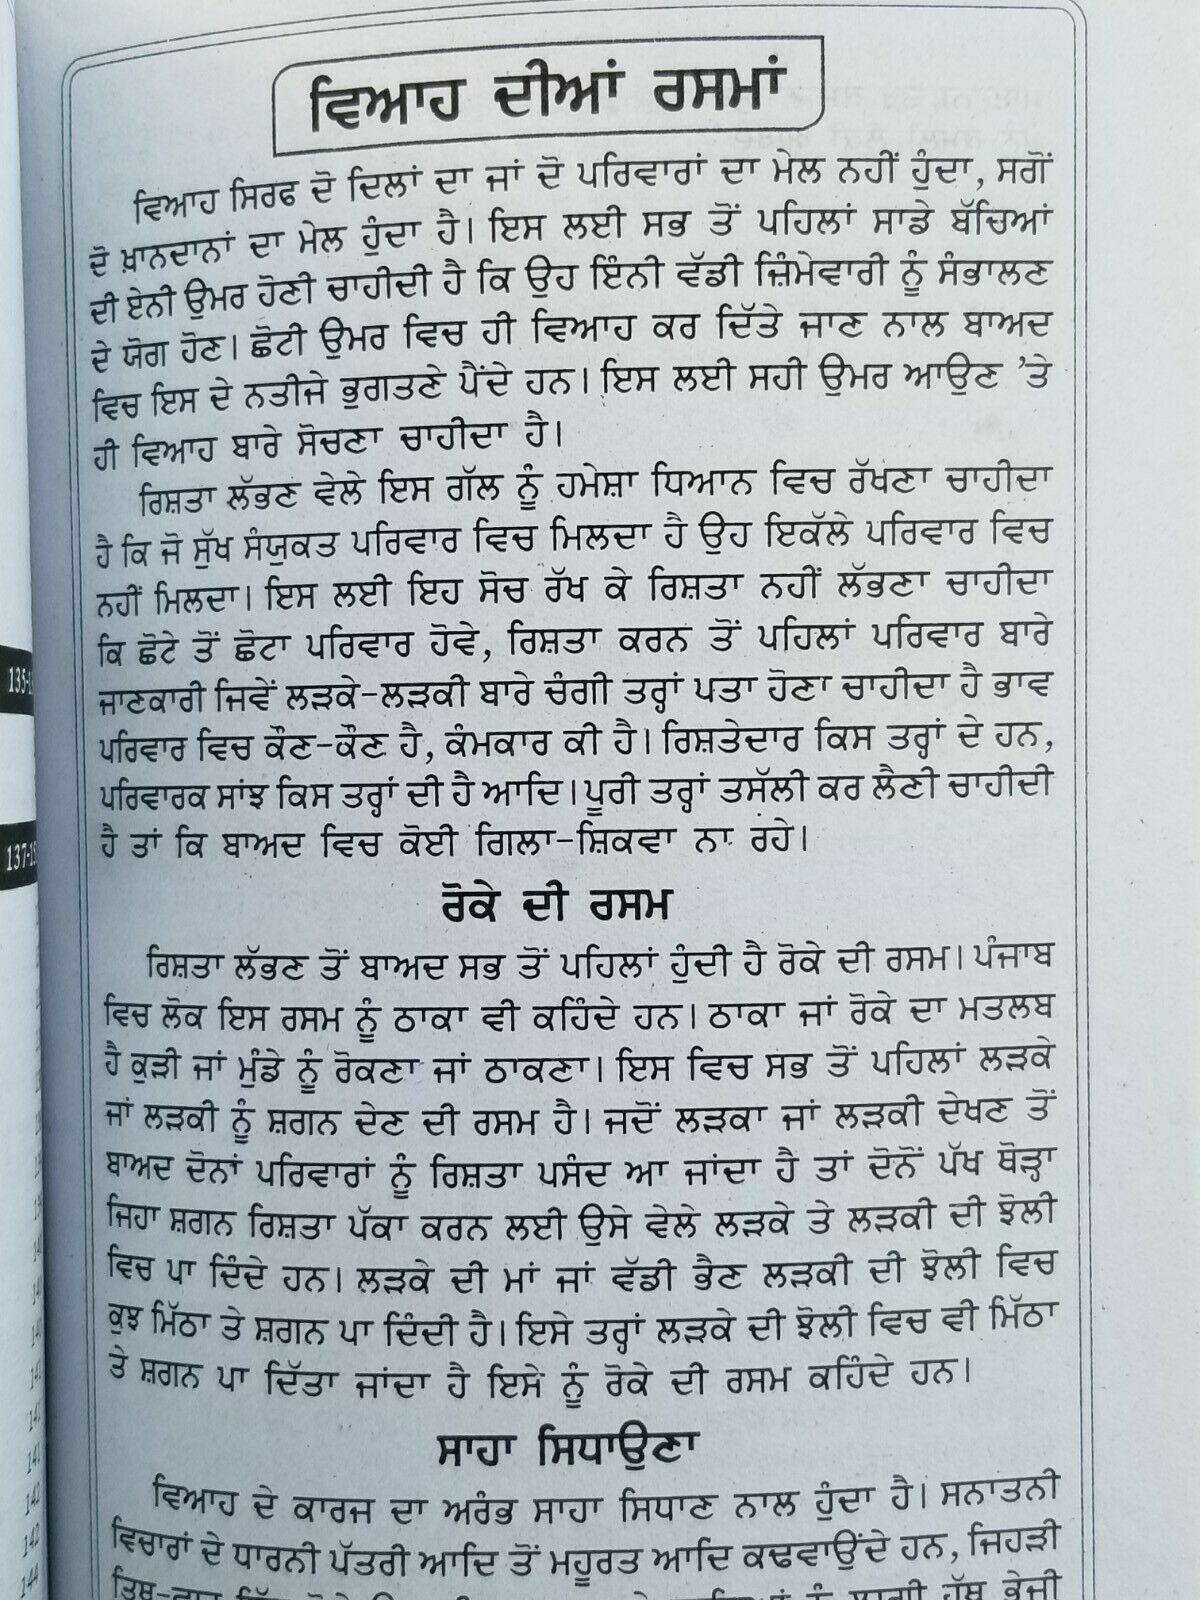 ਵਿਆਹ ਦੀਆਂ ਰਸਮਾਂ
ਵਿਆਹ ਸਿਰਫ ਦੋ ਦਿਲਾਂ ਦਾ ਜਾਂ ਦੋ ਪਰਿਵਾਰਾਂ ਦਾ ਮੇਲ ਨਹੀਂ ਹੁੰਦਾ, ਸਗੋਂ
ਦੋ ਖ਼ਾਨਦਾਨਾਂ ਦਾ ਮੇਲ ਹੁੰਦਾ ਹੈ। ਇਸ ਲਈ ਸਭ ਤੋਂ ਪਹਿਲਾਂ ਸਾਡੇ ਬੱਚਿਆਂ
ਦੀ ਏਨੀ ਉਮਰ ਹੋਣੀ ਚਾਹੀਦੀ ਹੈ ਕਿ ਉਹ ਇੰਨੀ ਵੱਡੀ ਜ਼ਿੰਮੇਵਾਰੀ ਨੂੰ ਸੰਭਾਲਣ
ਦੇ ਯੋਗ ਹੋਣ। ਛੋਟੀ ਉਮਰ ਵਿਚ ਹੀ ਵਿਆਹ ਕਰ ਦਿੱਤੇ ਜਾਣ ਨਾਲ ਬਾਅਦ
ਵਿਚ ਇਸ ਦੇ ਨਤੀਜੇ ਭੁਗਤਣੇ ਪੈਂਦੇ ਹਨ। ਇਸ ਲਈ ਸਹੀ ਉਮਰ ਆਉਣ ’ਤੇ
ਹੀ ਵਿਆਹ ਬਾਰੇ ਸੋਚਣਾ ਚਾਹੀਦਾ ਹੈ।
ਰਿਸ਼ਤਾ ਲੱਭਣ ਵੇਲੇ ਇਸ ਗੱਲ ਨੂੰ ਹਮੇਸ਼ਾ ਧਿਆਨ ਵਿਚ ਰੱਖਣਾ ਚਾਹੀਦਾ
ਹੈ ਕਿ ਜੋ ਸੁੱਖ ਸੰਯੁਕਤ ਪਰਿਵਾਰ ਵਿਚ ਮਿਲਦਾ ਹੈ ਉਹ ਇਕੱਲੇ ਪਰਿਵਾਰ ਵਿਚ
ਨਹੀਂ ਮਿਲਦਾ। ਇਸ ਲਈ ਇਹ ਸੋਚ ਰੱਖ ਕੇ ਰਿਸ਼ਤਾ ਨਹੀਂ ਲੱਭਣਾ ਚਾਹੀਦਾ
ਕਿ ਛੋਟੇ ਤੋਂ ਛੋਟਾ ਪਰਿਵਾਰ ਹੋਵੇ, ਰਿਸ਼ਤਾ ਕਰਨ ਤੋਂ ਪਹਿਲਾਂ ਪਰਿਵਾਰ ਬਾਰੇ
ਜਾਣਕਾਰੀ ਜਿਵੇਂ ਲੜਕੇ-ਲੜਕੀ ਬਾਰੇ ਚੰਗੀ ਤਰ੍ਹਾਂ ਪਤਾ ਹੋਣਾ ਚਾਹੀਦਾ ਹੈ ਭਾਵ
ਪਰਿਵਾਰ ਵਿਚ ਕੌਣ-ਕੌਣ ਹੈ, ਕੰਮਕਾਰ ਕੀ ਹੈ। ਰਿਸ਼ਤੇਦਾਰ ਕਿਸ ਤਰ੍ਹਾਂ ਦੇ ਹਨ,
ਪਰਿਵਾਰਕ ਸਾਂਝ ਕਿਸ ਤਰ੍ਹਾਂ ਦੀ ਹੈ ਆਦਿ। ਪੂਰੀ ਤਰ੍ਹਾਂ ਤਸੱਲੀ ਕਰ ਲੈਣੀ ਚਾਹੀਦੀ
ਹੈ ਤਾਂ ਕਿ ਬਾਅਦ ਵਿਚ ਕੋਈ ਗਿਲਾ-ਸ਼ਿਕਵਾ ਨਾ ਰਹੇ।
ਰੋਕੇ ਦੀ ਰਸਮ
ਰਿਸ਼ਤਾ ਲੱਭਣ ਤੋਂ ਬਾਅਦ ਸਭ ਤੋਂ ਪਹਿਲਾਂ ਹੁੰਦੀ ਹੈ ਰੋਕੇ ਦੀ ਰਸਮ। ਪੰਜਾਬ
ਵਿਚ ਲੋਕ ਇਸ ਰਸਮ ਨੂੰ ਠਾਕਾ ਵੀ ਕਹਿੰਦੇ ਹਨ। ਠਾਕਾ ਜਾਂ ਰੋਕੇ ਦਾ ਮਤਲਬ
ਹੈ ਕੁੜੀ ਜਾਂ ਮੁੰਡੇ ਨੂੰ ਰੋਕਣਾ ਜਾਂ ਠਾਕਣਾ। ਇਸ ਵਿਚ ਸਭ ਤੋਂ ਪਹਿਲਾਂ ਲੜਕੇ
ਜਾਂ ਲੜਕੀ ਨੂੰ ਸ਼ਗਨ ਦੇਣ ਦੀ ਰਸਮ ਹੈ। ਜਦੋਂ ਲੜਕਾ ਜਾਂ ਲੜਕੀ ਦੇਖਣ ਤੋਂ
ਬਾਅਦ ਦੋਨਾਂ ਪਰਿਵਾਰਾਂ ਨੂੰ ਰਿਸ਼ਤਾ ਪਸੰਦ ਆ ਜਾਂਦਾ ਹੈ ਤਾਂ ਦੋਨੋਂ ਪੱਖ ਥੋੜ੍ਹਾ
ਜਿਹਾ ਸ਼ਗਨ ਰਿਸ਼ਤਾ ਪੱਕਾ ਕਰਨ ਲਈ ਉਸੇ ਵੇਲੇ ਲੜਕੇ ਤੇ ਲੜਕੀ ਦੀ ਝੋਲੀ
ਵਿਚ ਪਾ ਦਿੰਦੇ ਹਨ। ਲੜਕੇ ਦੀ ਮਾਂ ਜਾਂ ਵੱਡੀ ਭੈਣ ਲੜਕੀ ਦੀ ਝੋਲੀ ਵਿਚ
ਕੁਝ ਮਿੱਠਾ ਤੇ ਸ਼ਗਨ ਪਾ ਦਿੰਦੀ ਹੈ। ਇਸੇ ਤਰ੍ਹਾਂ ਲੜਕੇ ਦੀ ਝੋਲੀ ਵਿਚ ਵੀ ਮਿੱਠਾ
ਤੇ ਸ਼ਗਨ ਪਾ ਦਿੱਤਾ ਜਾਂਦਾ ਹੈ ਇਸੇ ਨੂੰ ਰੋਕੇ ਦੀ ਰਸਮ ਕਹਿੰਦੇ ਹਨ।
ਸਾਹਾ ਸਿਧਾਉਣਾ
ਵਿਆਹ ਦੇ ਕਾਰਜ ਦਾ ਅਰੰਭ ਸਾਹਾ ਸਿਧਾਣ ਨਾਲ ਹੁੰਦਾ ਹੈ। ਸਨਾਤਨੀ
ਵਿਚਾਰਾਂ ਦੇ ਧਾਰਨੀ ਪੱਤਰੀ ਆਦਿ ਤੋਂ ਮਹੂਰਤ ਆਦਿ ਕਢਵਾਉਂਦੇ ਹਨ, ਜਿਹੜੀ